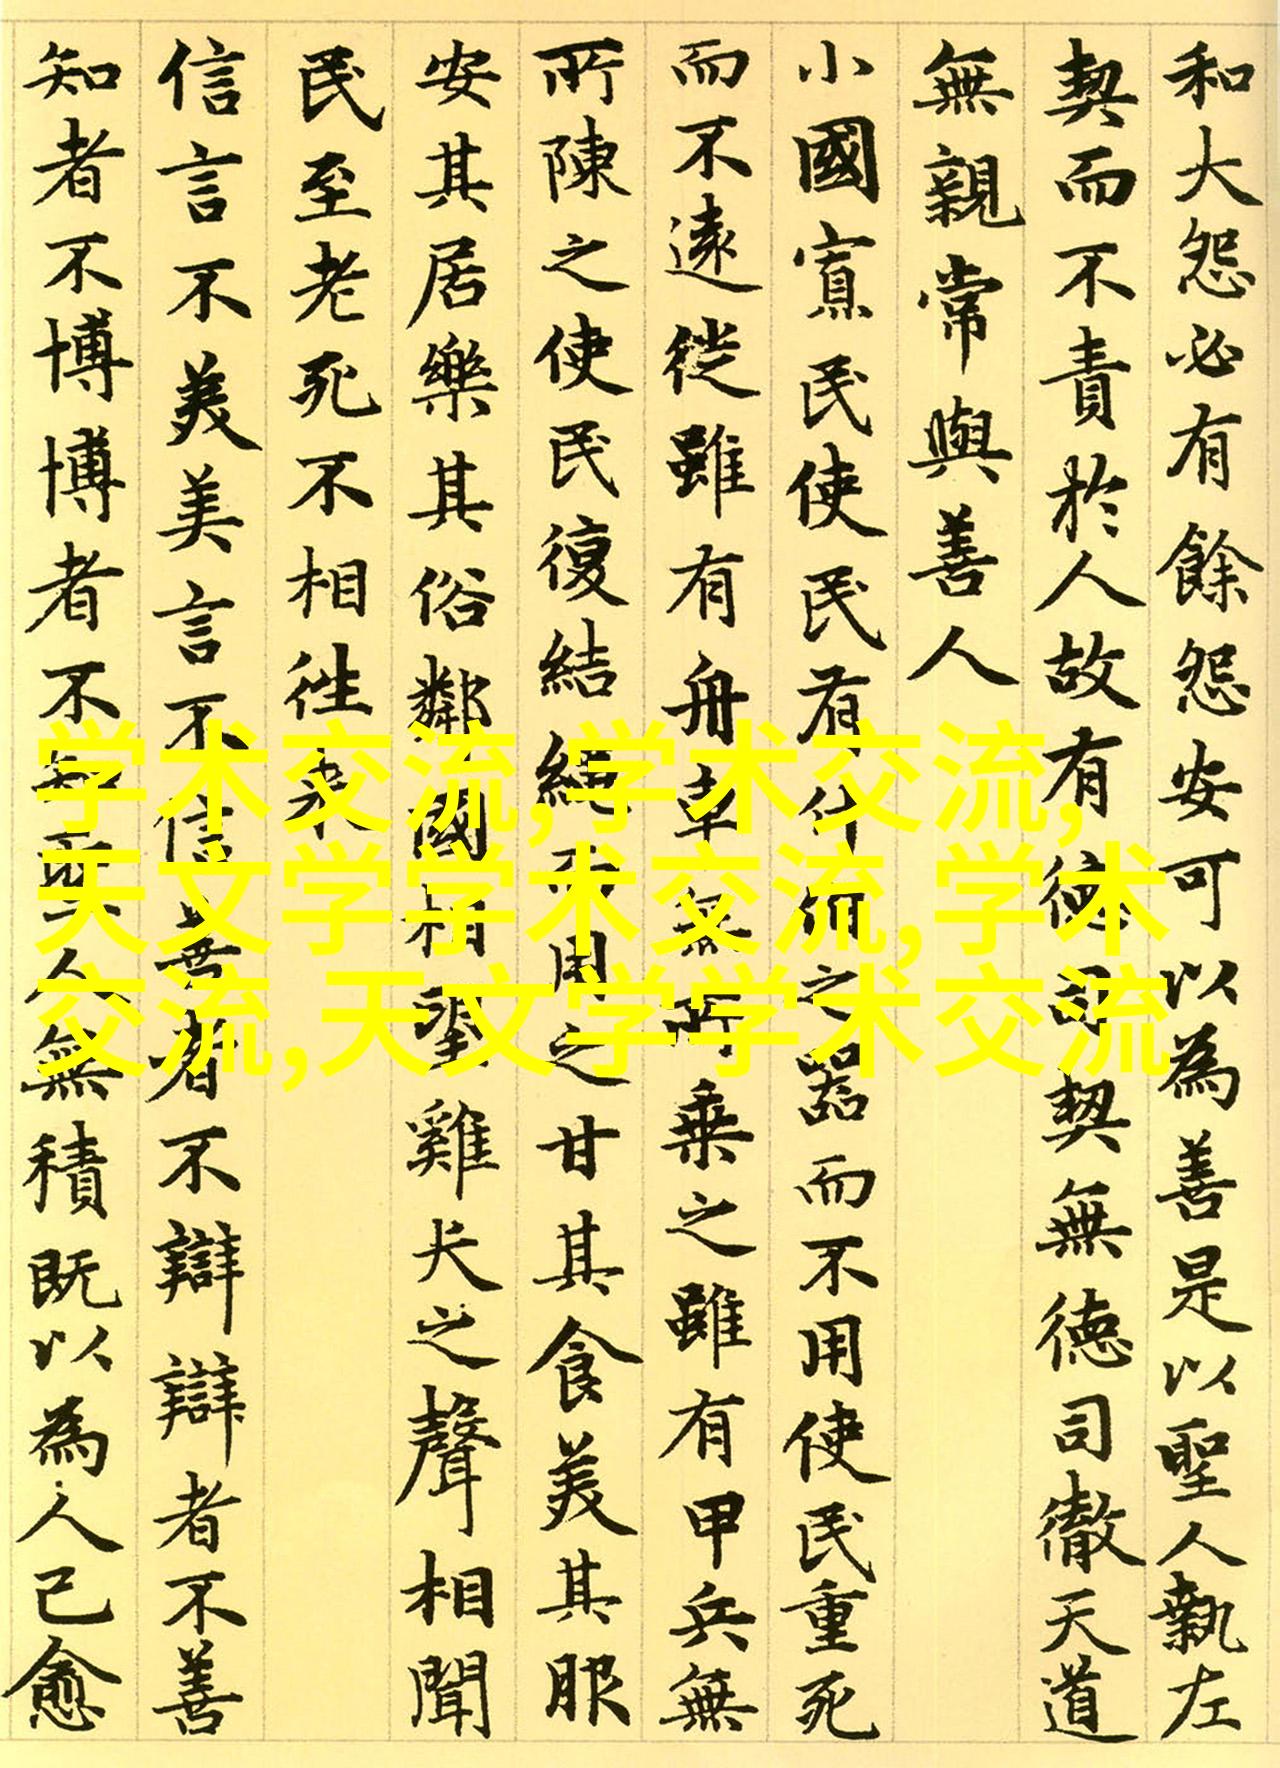 和大怨必有餘怨安可以為善是以聖人執左
契而不責於人故有德司契無德司徹天道
無親常與善人
小國寡民使民有什伯之器而不用使民重死
而不遠徙雖有舟車無所乘之雖有甲兵無
所陳之使民復結繩而用之甘其食美其服
安其居樂其俗鄰國相望雞犬之聲相聞
民至老死不相往来
信言不美美言不信善者不辯辯者不善
知者不博博者不知聖人無積既以為人己愈
学术交流,学术交流,
天文学学术交流,学术
交流,天文学学术交流